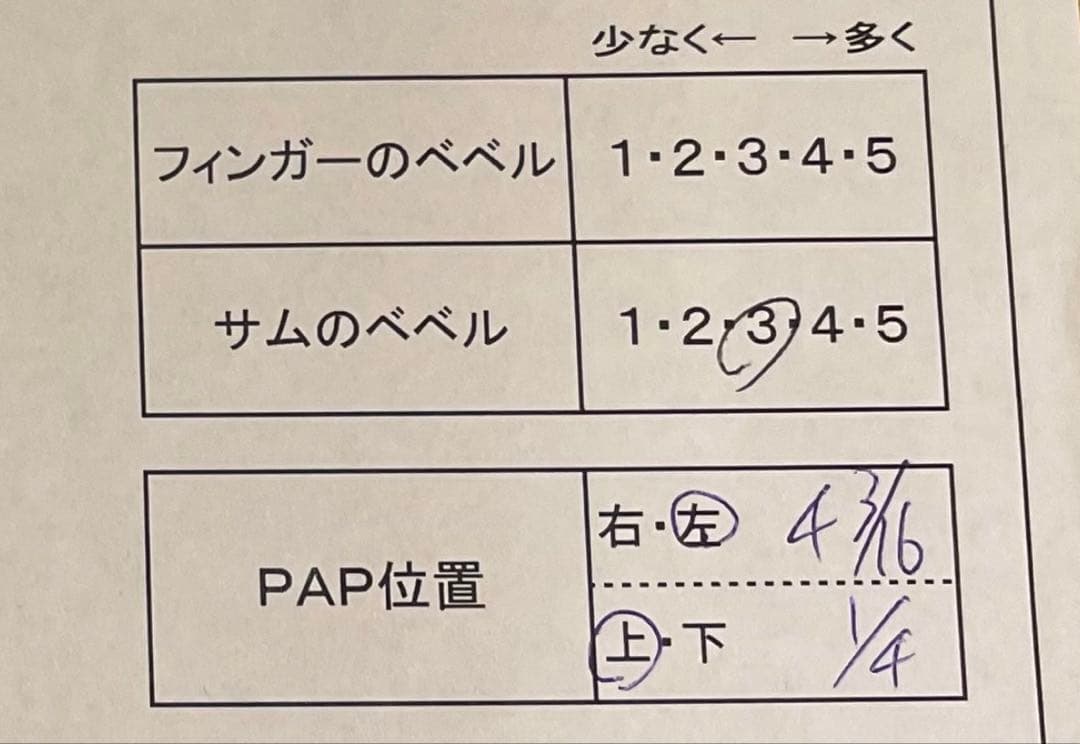 少なく← →多く
フィンガーのベベル 1・2・3・4・5
サムのベベル 1・2・3・4・5
右・左 4 3/16
PAP位置
上・下 1/4